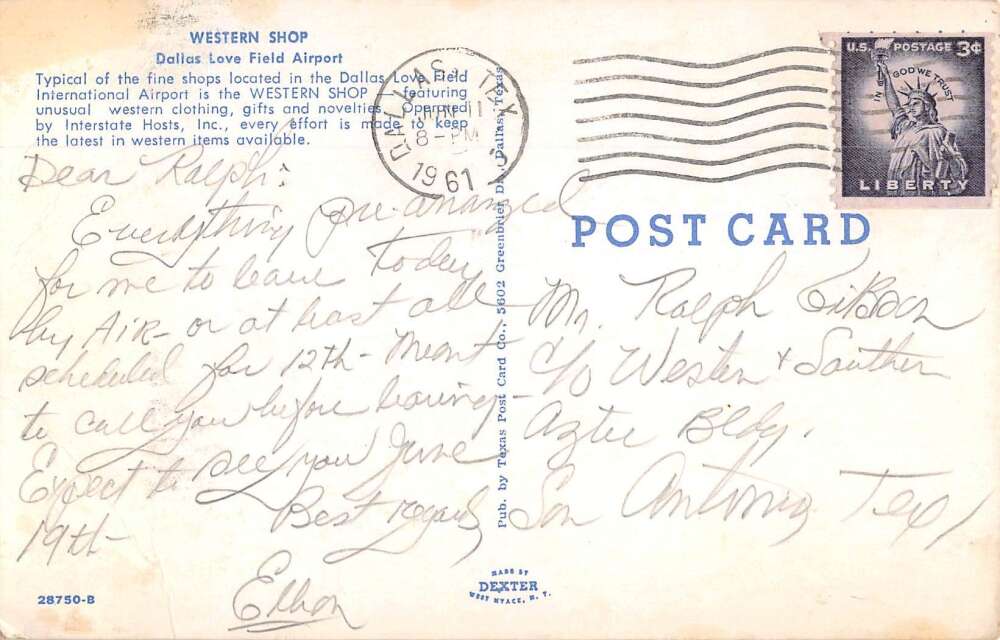 WESTERN SHOP
Dallas Love Field Airport
Typical of the fine shops located in the Dallas Love Field
International Airport is the WESTERN SHOP featuring
unusual western clothing, gifts and novelties. Operated
by Interstate Hosts, Inc., every effort is made to keep
the latest in western items available.
DALLAS, TEX
8-PM
1961
U.S. POSTAGE 3¢
IN GOD WE TRUST
LIBERTY
POST CARD
Dear Ralph:
Everything pre-arranged
for me to leave today
by Air - or at least all
scheduled for 12th - Meant
to call you before leaving -
Expect to see you June
19th -
Best regards
Mr. Ralph Gibson
c/o Western & Southern
Aztec Bldg.
San Antonio, Tex
Pub. by Texas Post Card Co., 5602 Greenbrier Dr., Dallas, Texas
28750-B
MADE BY
DEXTER
WEST NYACK, N. Y.